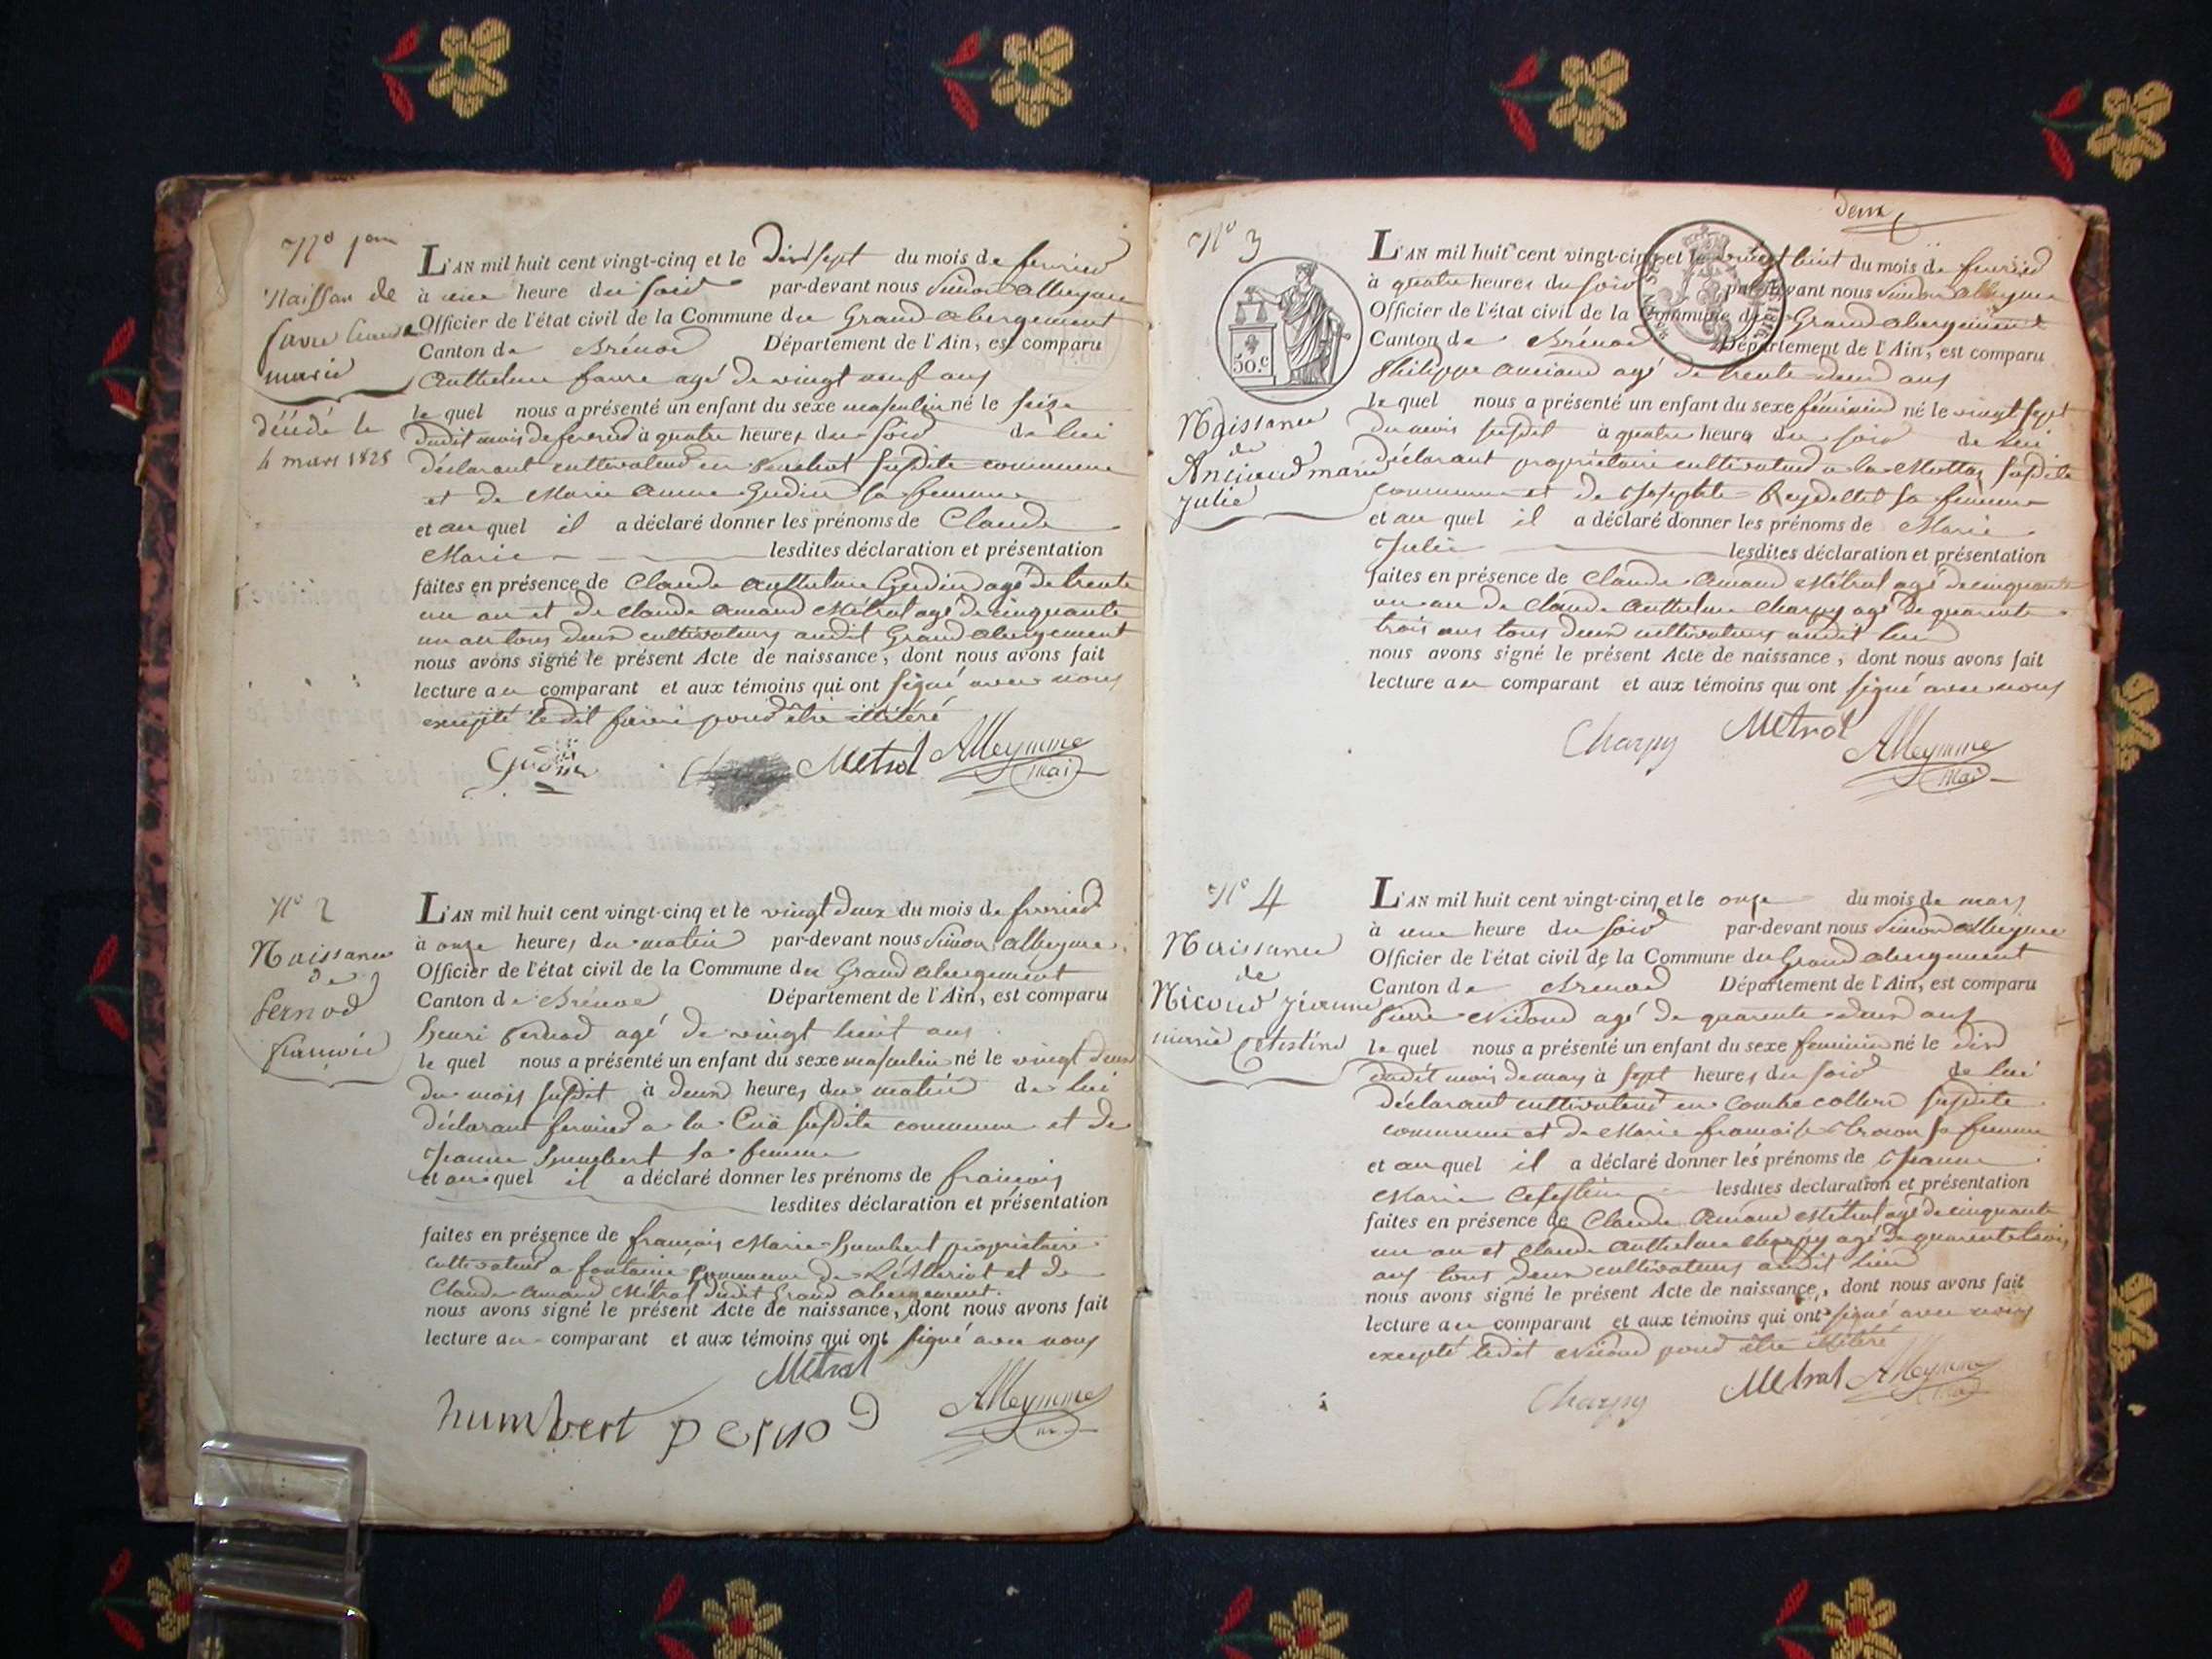 N° 1er
Naissan de
favre Claude
marie
décédé le
4 mars 1825
L'AN mil huit cent vingt-cinq et le dix sept du mois de fevrier
à une heure du soir par-devant nous Simon Alleymme
Officier de l'état civil de la Commune du Grand abergement
Canton de Brénod Département de l'Ain, est comparu
Anthelme favre agé de vingt neuf ans
le quel nous a présenté un enfant du sexe masculin né le seize
dudit mois de fevrier à quatre heures du soir de lui
déclarant cultivateur en susdite commune
et de Marie Anne Gudin sa femme
et au quel il a déclaré donner les prénoms de Claude
Marie lesdites déclaration et présentation
faites en présence de Claude Anthelme Gudin agé de trente
un an et de Claude Amand Métral agé de cinquante
un an tous deux cultivateurs audit Grand abergement
nous avons signé le présent Acte de naissance, dont nous avons fait
lecture au comparant et aux témoins qui ont signé avec nous
excepté ledit favre pour être illitéré
Gudin Metral Alleymme
mai
N° 2
Naissance
de
Pernod
françois
L'AN mil huit cent vingt-cinq et le vingt deux du mois de fevrier
à onze heures du matin par-devant nous Simon Alleymme
Officier de l'état civil de la Commune du Grand abergement
Canton de Brénod Département de l'Ain, est comparu
henri Pernod agé de vingt huit ans
le quel nous a présenté un enfant du sexe masculin né le vingt deux
du mois susdit à deux heures du matin de lui
déclarant fermier a la susdite commune et de
Jeanne humbert sa femme
et au quel il a déclaré donner les prénoms de françois
lesdites déclaration et présentation
faites en présence de françois Marie humbert propriétaire
cultivateur a fontaine commune de et de
Claude Amand Métral dudit Grand abergement.
nous avons signé le présent Acte de naissance, dont nous avons fait
lecture au comparant et aux témoins qui ont signé avec nous
Metral
humbert pernod Alleymme
deux
N° 3
50.c
1816
Naissance
de
Anciand marie
julie
L'AN mil huit cent vingt-cinq et le vingt huit du mois de fevrier
à quatre heures du soir par-devant nous Simon Alleymme
Officier de l'état civil de la Commune du Grand abergement
Canton de Brénod Département de l'Ain, est comparu
Philippe anciand agé de trente deux ans
le quel nous a présenté un enfant du sexe féminin né le vingt sept
du mois susdit à quatre heures du soir de lui
déclarant propriétaire cultivateur a la susdite
commune et de Josephte Reydellet sa femme
et au quel il a déclaré donner les prénoms de Marie
Julie lesdites déclaration et présentation
faites en présence de Claude Amand Métral agé de cinquante
un an de Claude Anthelme Charpy agé de quarante
trois ans tous deux cultivateurs audit lieu
nous avons signé le présent Acte de naissance, dont nous avons fait
lecture au comparant et aux témoins qui ont signé avec nous
Charpy Metral Alleymme
mai
N° 4
Naissance
de
Nicoud jeanne
marie célestine
L'AN mil huit cent vingt-cinq et le onze du mois de mars
à une heure du soir par-devant nous Simon Alleymme
Officier de l'état civil de la Commune du Grand abergement
Canton de Brénod Département de l'Ain, est comparu
Pierre Nicoud agé de quarante deux ans
le quel nous a présenté un enfant du sexe feminin né le dix
dudit mois de mars à sept heures du soir de lui
déclarant cultivateur en Combe susdite
commune et de Marie francoise sa femme
et au quel il a déclaré donner les prénoms de Jeanne
Marie Celestine lesdites déclaration et présentation
faites en présence de Claude Amand Metral agé de cinquante
un an et Claude Anthelme Charpy agé de quarante trois
ans tous deux cultivateurs audit lieu
nous avons signé le présent Acte de naissance, dont nous avons fait
lecture au comparant et aux témoins qui ont signé avec nous
excepté ledit Nicoud pour être illitéré
Charpy Metral Alleymme